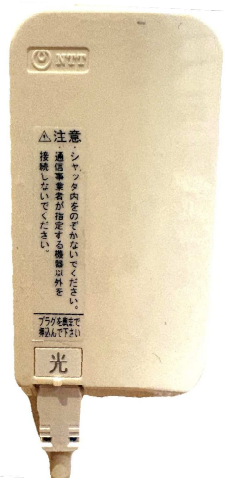 NTT
⚠注意
・シャッタ内をのぞかないでください。
・通信事業者が指定する機器以外を
接続しないでください。
プラグを奥まで
押込んで下さい
光